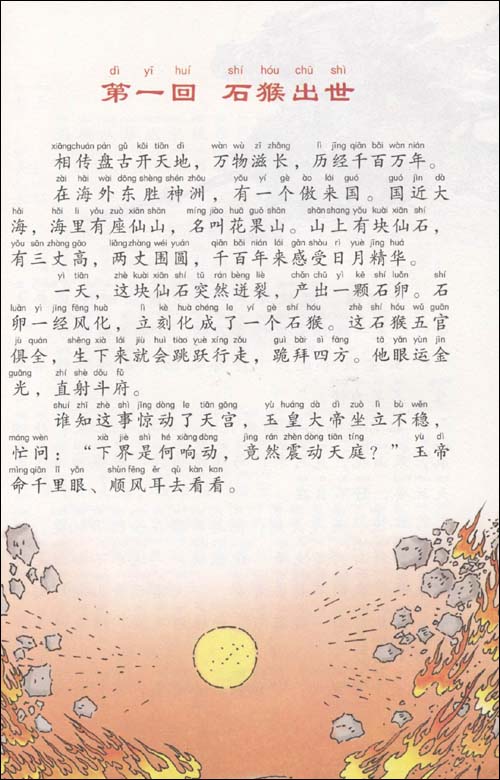 dì yī huí shí hóu chū shì
第一回 石猴出世
xiāngchuán pán gǔ kāi tiān dì wàn wù zī zhǎng lì jīng qiān bǎi wàn nián
相传盘古开天地，万物滋长，历经千百万年。
zài hǎi wài dōng shèng shén zhōu yǒu yí gè ào lái guó guó jìn dà
在海外东胜神洲，有一个傲来国。国近大
hǎi hǎi lǐ yǒu zuò xiān shān míng jiào huā guǒ shān shān shang yǒu kuài xiān shí
海，海里有座仙山，名叫花果山。山上有块仙石，
yǒu sān zhàng gāo liǎng zhàng wéi yuán qiān bǎi nián lái gǎn shòu rì yuè jīng huá
有三丈高，两丈围圆，千百年来感受日月精华。
yì tiān zhè kuài xiān shí tū rán bèng liè chǎn chū yì kē shí luǎn shí
一天，这块仙石突然迸裂，产出一颗石卵。石
luǎn yì jīng fēng huà lì kè huà chéng le yí gè shí hóu zhè shí hóu wǔ guān
卵一经风化，立刻化成了一个石猴。这石猴五官
jù quán shēng xià lái jiù huì tiào yuè xíng zǒu guì bài sì fāng tā yǎn yùn jīn
俱全，生下来就会跳跃行走，跪拜四方。他眼运金
guāng zhí shè dǒu fǔ
光，直射斗府。
shuí zhī zhè shì jīng dòng le tiān gōng yù huáng dà dì zuò lì bù wěn
谁知这事惊动了天宫，玉皇大帝坐立不稳，
máng wèn xià jiè shì hé xiǎng dòng jìng rán zhèn dòng tiān tíng yù dì
忙问：“下界是何响动，竟然震动天庭？”玉帝
mìng qiān lǐ yǎn shùn fēng ěr qù kàn kan
命千里眼、顺风耳去看看。